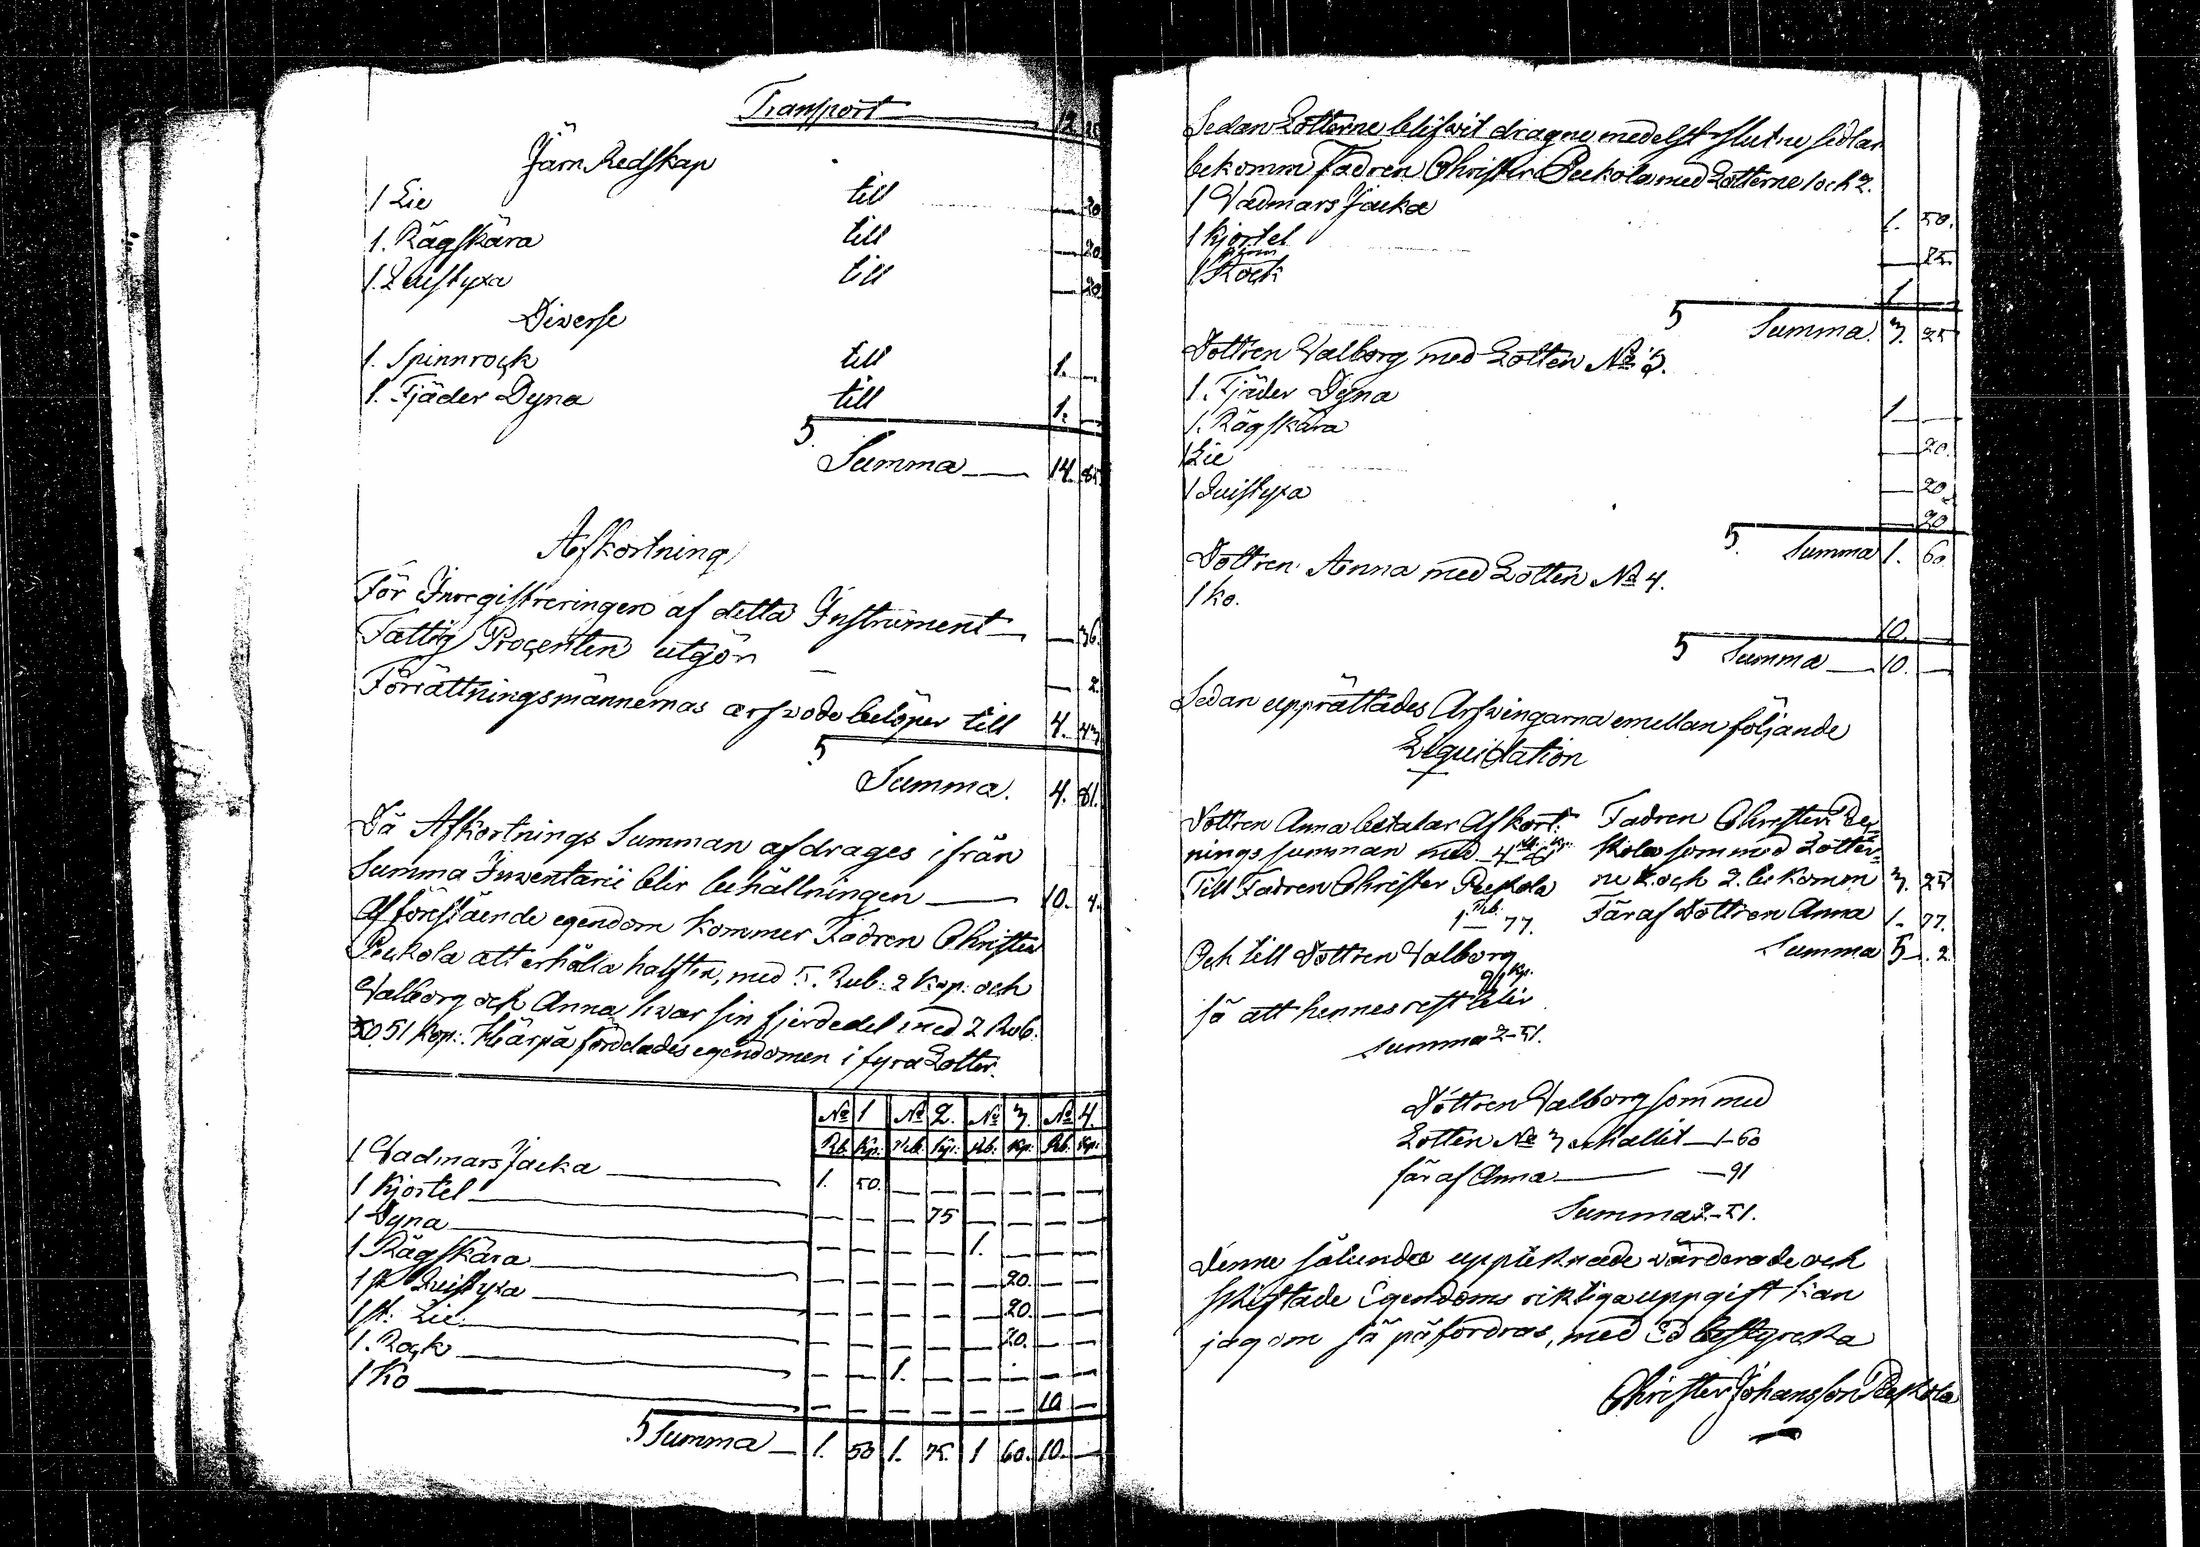 Transport 12. 25
Järn Redskap
1 Lie till — 20
1. Rågskära till — 20
1. Quistyxa till — 20
Diverse
1. Spinnrock till 1. —
1. Fjäder Dyna till 1. —
S. Summa — 14. 85.
Afkortning
För Inregistreringen af detta Instrument — 36.
Fattig Procenten utgör — 2.
Förrättningsmännernas arfvode belöper till 4. 43
S Summa. 4. 81.
Då Afkortnings Summan afdrages ifrån
Summa Inventarii blir behållningen — 10. 4.
Af förestående egendom kommer Fadren Christer
Peekola att erhålla halften, med 5. Rub: 2 Kop: och
Valborg och Anna hvar sin fjerdedel med 2 Rub.
51 Kop:. Härpå fördelades egendomen i fyra Lotter.
No 1 No 2. No 3. No 4.
Rb. Kp. Rub. Kp: Rb: Kp. Rb. Kp:
1 Vadmars Jacka — 1. 50. — — — — — —
1 Kjortel — — — — 75 — — — —
1 Dyna — — — — — 1. — — —
1 Rågskära — — — — — — 20. — —
1 st Quistyxa — — — — — — 20. — —
1 st: Lie — — — — — — 20. — —
1. Rock — — — 1. — — — — —
1 Ko — — — — — — — 10 —
S Summa — 1. 50 1. 75. 1 60. 10. —
Sedan Lotterne blifvit dragne medelst slutne sedlar
bekomm Fadren Christer Peekola med Lotterne 1 och 2.
1 Vadmars Jacka 1. 50.
1 Kjortel — 75.
1 Spinn Rock 1 —
S Summa. 3. 25
Dottren Valborg med Lotten No 3.
1. Fjäder Dyna 1 —
1. Rågskära — 20.
1 Lie — 20
1 Quistyxa — 20
S. Summa 1. 60
Dottren Anna med Lotten No 4.
1 Ko. 10. —
S Summa — 10. —
Sedan upprättades Arfvingarna emellan följande
Liquidation
Dottren Anna betalar Afkort:
nings summan med 4 Rb. 81 Kp.
Till Fadren Christer Peekola
1 Rb. 77.
Och till Dottren Valborg
91 Kp.
så att hennes rest blir
Summa 2-51.
Fadren Christer Pe-
kola som med Lotter-
ne 1. och 2. bekomm 3. 25
Får af Dottren Anna 1. 77.
Summa 5. 2.
Dottren Valborg som med
Lotten No 3 erhallit — 1-60
får af Anna — — 91
Summa 2-51.
Denne sålunda uppteknade värderade och
skiftade Egendoms riktiga uppgift kan
jag om så påfordras, med Ed bestyrcka
Christer Johansson Peekola